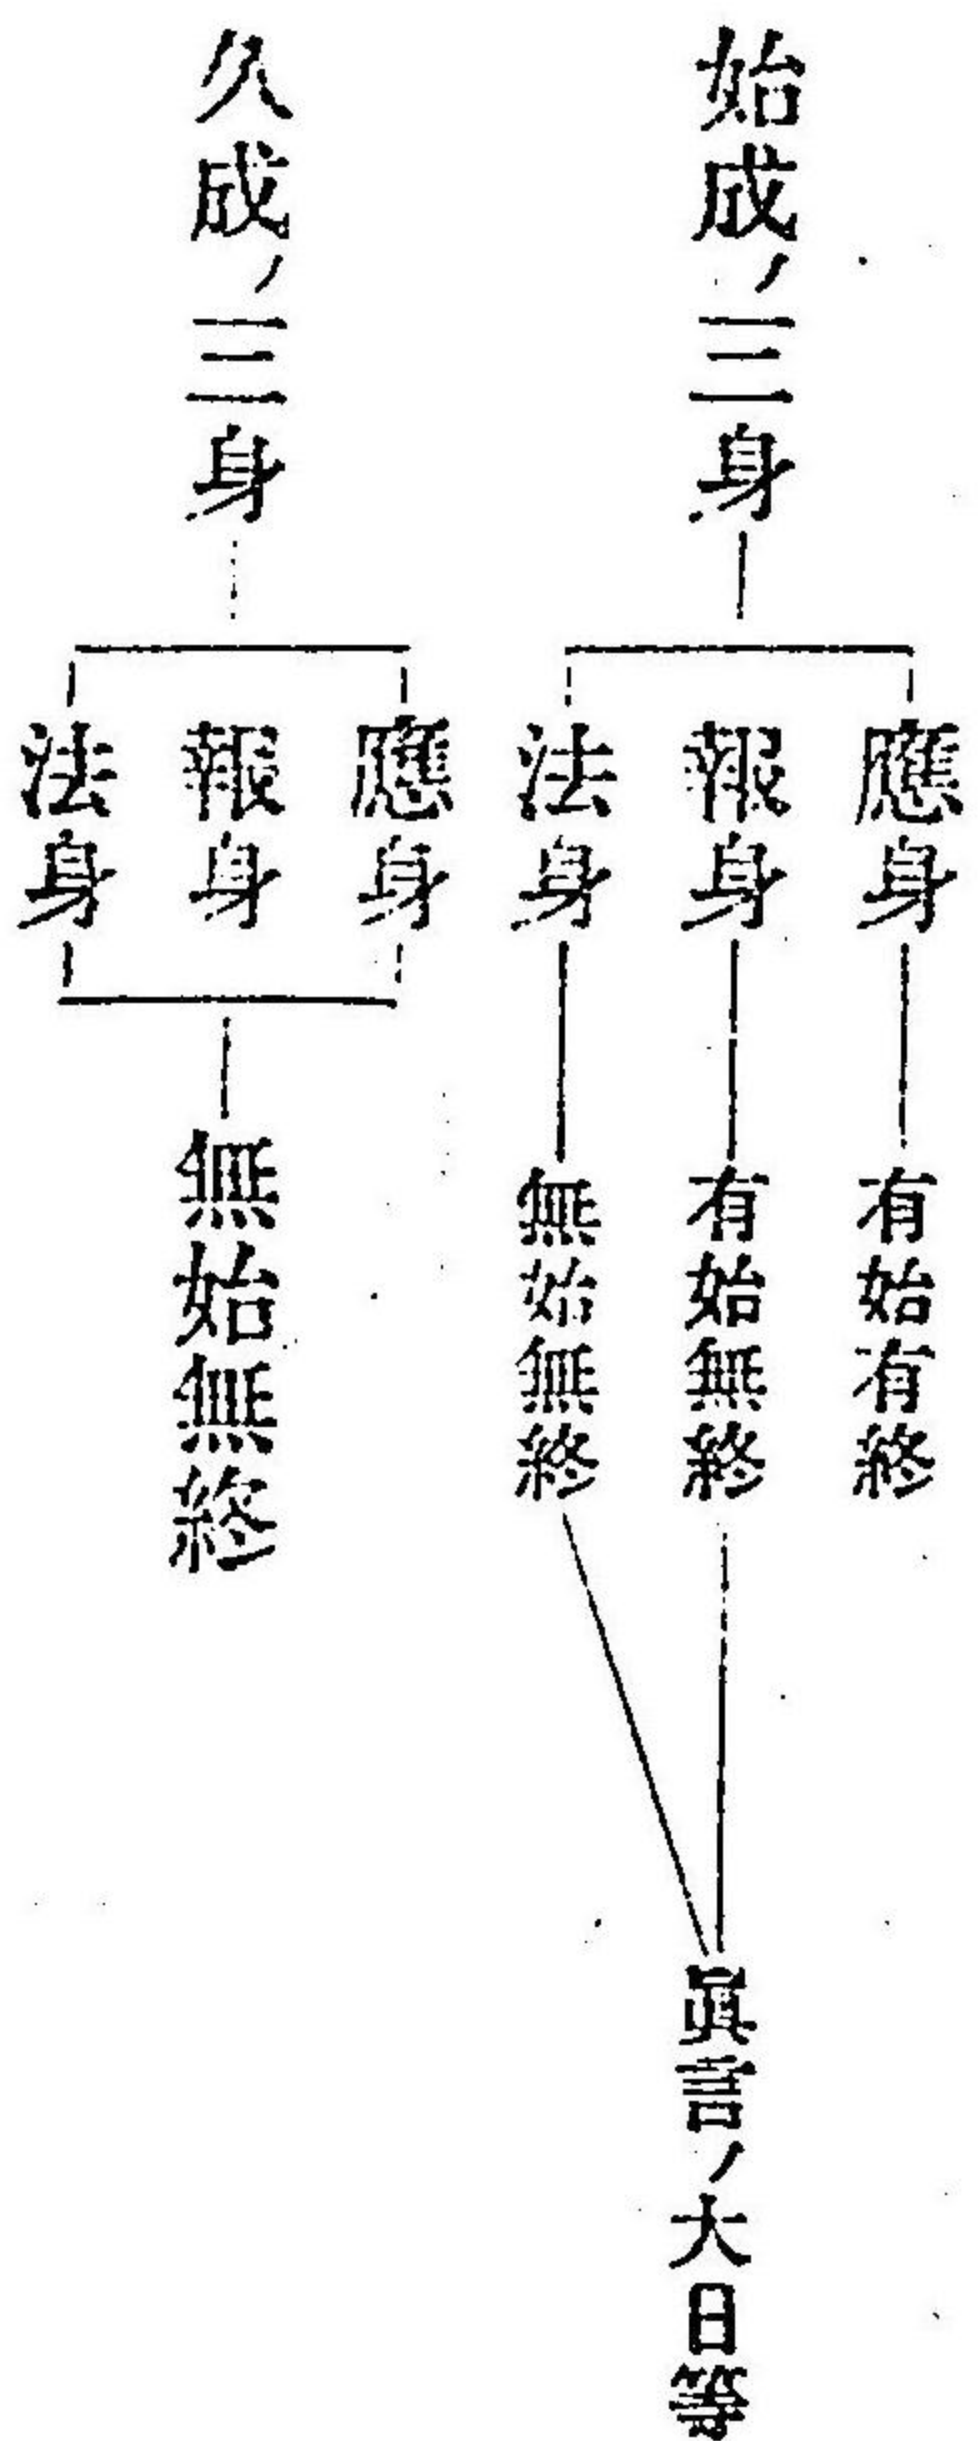 始成ノ三身
應身
有始有終
報身
有始無終
法身
無始無終
眞言ノ大日等
久成ノ三身
應身
報身
法身
無始無終